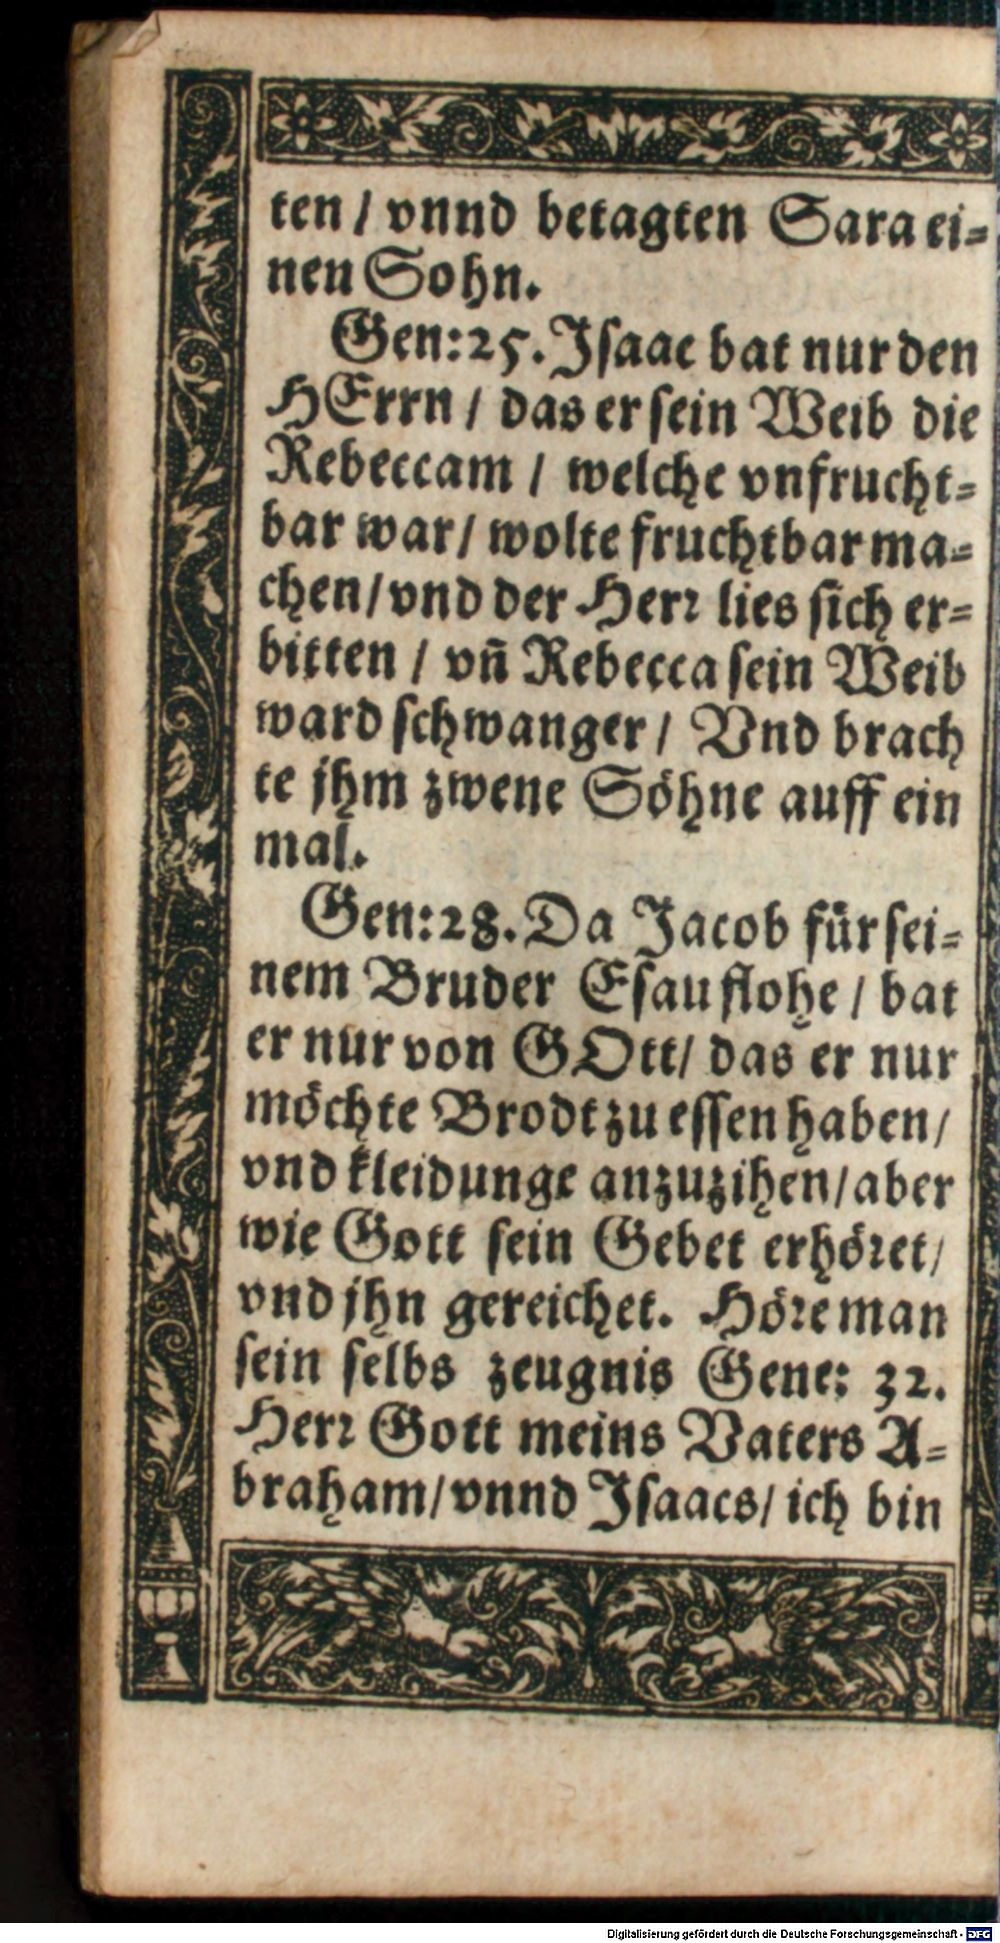 ten / vnnd betagten Sara ei-
nen Sohn.
Gen: 25. Jsaac bat nur den
HErrn / das er sein Weib die
Rebeccam / welche vnfrucht-
bar war / wolte fruchtbar ma-
chen / vnd der Herr lies sich er-
bitten / vñ Rebecca sein Weib
ward schwanger / Vnd brach
te jhm zwene Söhne auff ein
mal.
Gen: 28. Da Jacob für sei-
nem Bruder Esau flohe / bat
er nur von GOtt / das er nur
möchte Brodt zu essen haben /
vnd kleidunge anzuzihen / aber
wie Gott sein Gebet erhöret /
vnd jhn gereichet. Höre man
sein selbs zeugnis Gene: 32.
Herr Gott meins Vaters A-
braham / vnnd Jsaacs / ich bin
Digitalisierung gefördert durch die Deutsche Forschungsgemeinschaft - DFG